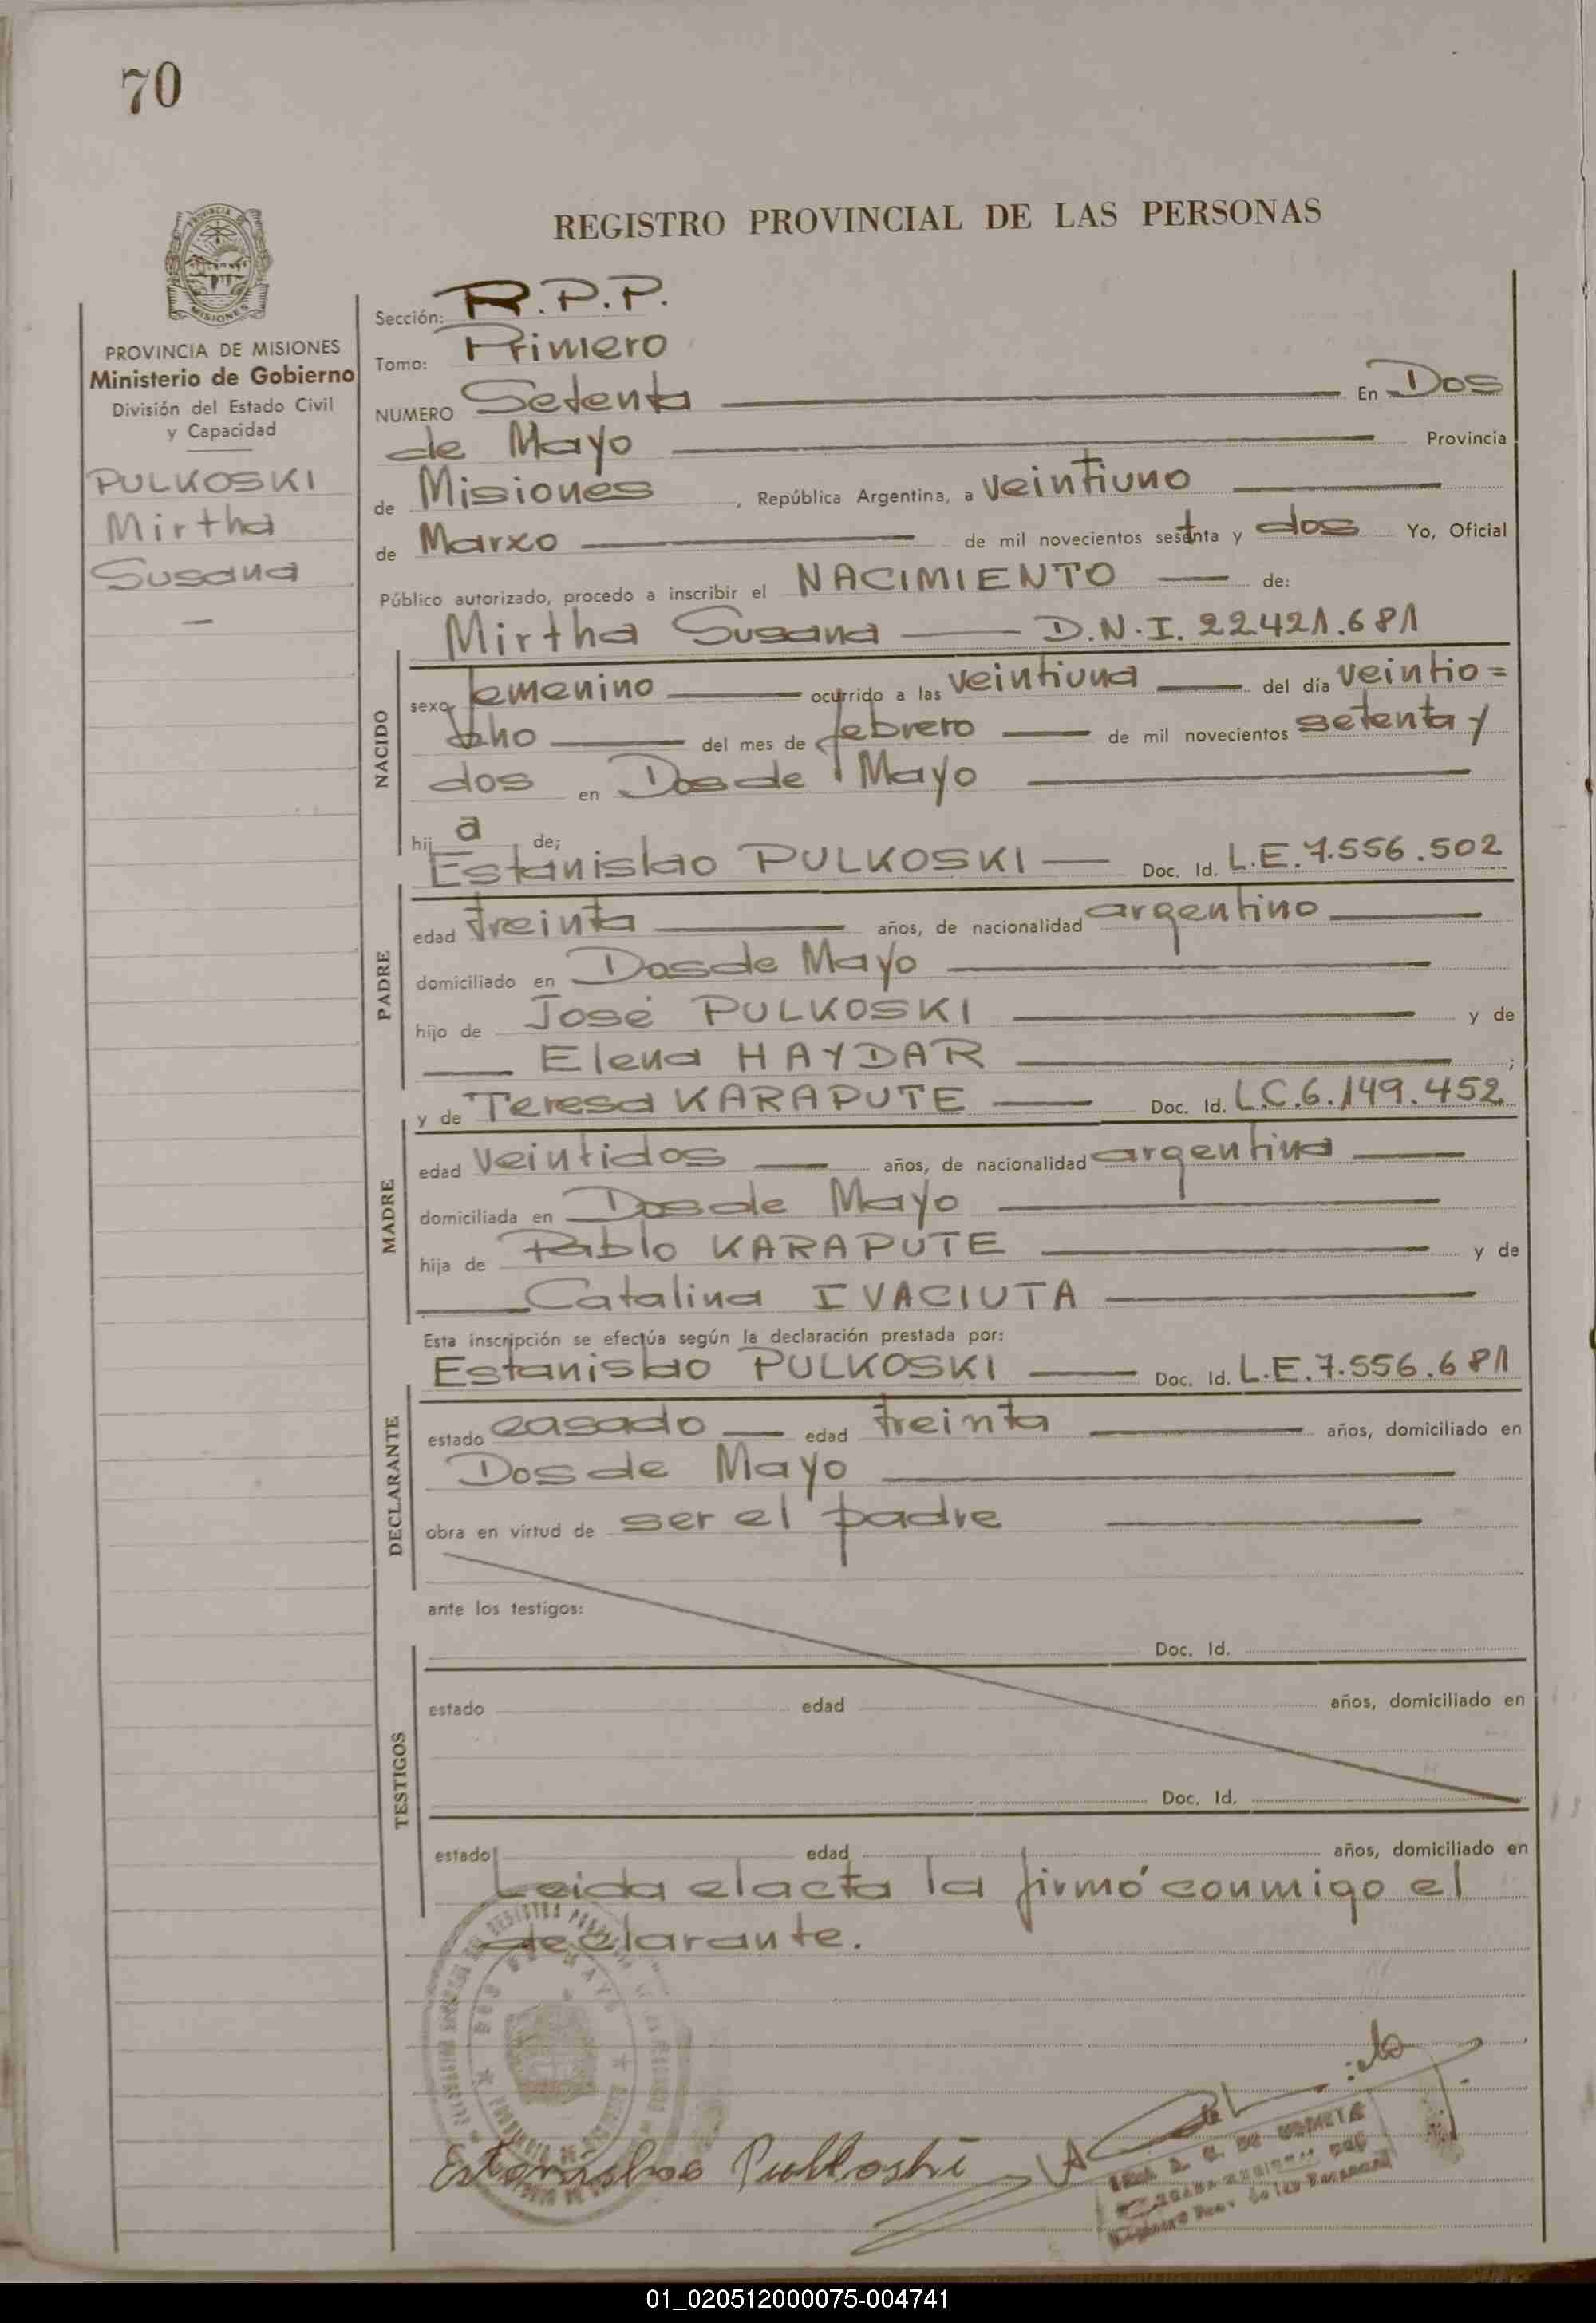 70
REGISTRO PROVINCIAL DE LAS PERSONAS
MISIONES
PROVINCIA DE MISIONES
Ministerio de Gobierno
División del Estado Civil
y Capacidad
PULKOSKI
Mirtha
Susana
Sección: R.P.P.
Tomo: Primero
NUMERO Setenta En Dos
de Mayo Provincia
de Misiones, República Argentina, a veintiuno
de Marzo de mil novecientos setenta y dos Yo, Oficial
Público autorizado, procedo a inscribir el NACIMIENTO de:
Mirtha Susana D.N.I. 22.421.681
NACIDO
sexo femenino ocurrido a las veintiuna del día veintio=
cho del mes de febrero de mil novecientos setenta y
dos en Dos de Mayo
hija de;
Estanislao PULKOSKI Doc. Id. L.E.7.556.502
PADRE
edad treinta años, de nacionalidad argentino
domiciliado en Dos de Mayo
hijo de José PULKOSKI y de
Elena HAYDAR ;
y de Teresa KARAPUTE Doc. Id. L.C.6.149.452
MADRE
edad veintidos años, de nacionalidad argentina
domiciliada en Dos de Mayo
hija de Pablo KARAPUTE y de
Catalina IVACIUTA
Esta inscripción se efectúa según la declaración prestada por:
Estanislao PULKOSKI Doc. Id. L.E.7.556.681
DECLARANTE
estado casado edad treinta años, domiciliado en
Dos de Mayo
obra en virtud de ser el padre
ante los testigos:
Doc. Id.
TESTIGOS
estado edad años, domiciliado en
Doc. Id.
estado edad años, domiciliado en
Leida el acta la firmó conmigo el
declarante.
Estanislao Pulkoski
01_020512000075-004741